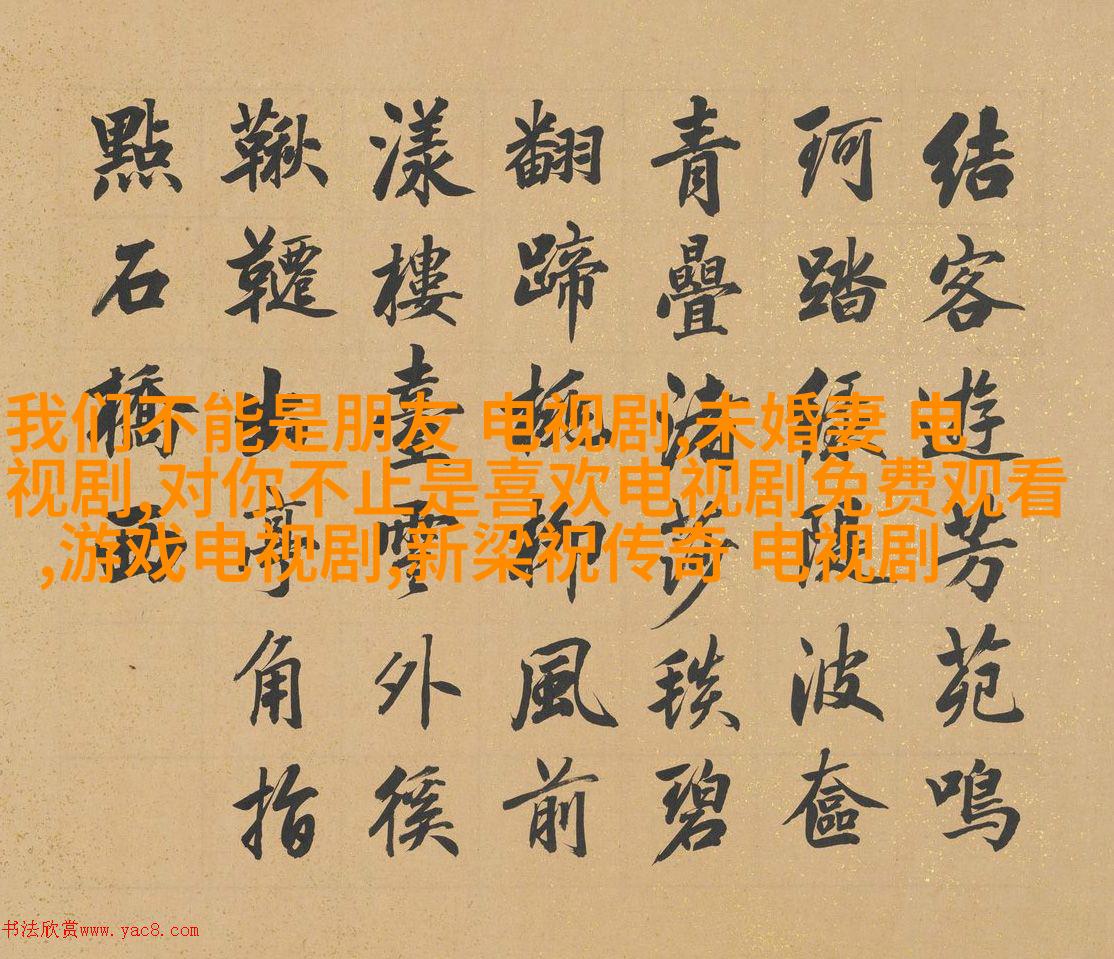 結客遊芳苑鳴
珂踏波奩
青疊渚莎毯碧
翻蹄柳風前
漾樓臺雲外徯
鞦韆亭角指
點石橋西
我们不能是朋友 电视剧,未婚妻 电
视剧,对你不止是喜欢电视剧免费观看
,游戏电视剧,新梁祝传奇 电视剧
书法欣赏www.yac8.com